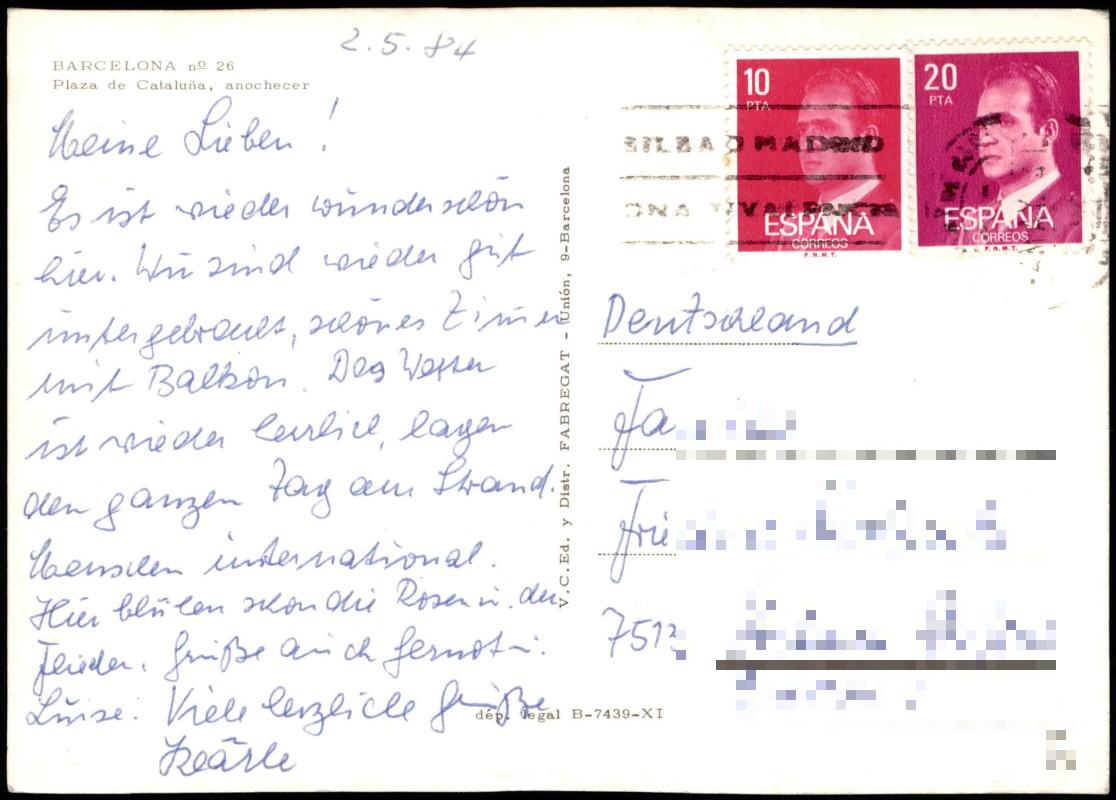 2.5.84
BARCELONA nº 26
Plaza de Cataluña, anochecer
Meine Lieben!
Es ist wieder wunderschön
hier. Wir sind wieder gut
untergebracht, schönes Zimmer
mit Balkon. Das Wetter
ist wieder herrlich, lagen
den ganzen Tag am Strand.
Menschen international.
Hier blühen schon die Rosen u. der
Flieder. Grüße auch Gernot u.
Luise. Viele herzliche Grüße
V.C.Ed. y Distr. FABREGAT - Unión, 9-Barcelona
dép. legal B-7439-XI
10
PTA
ESPAÑA
CORREOS
F.N.M.T.
20
PTA
ESPAÑA
CORREOS
F.N.M.T.
BILBAO MADRID
Deutschland
Fa